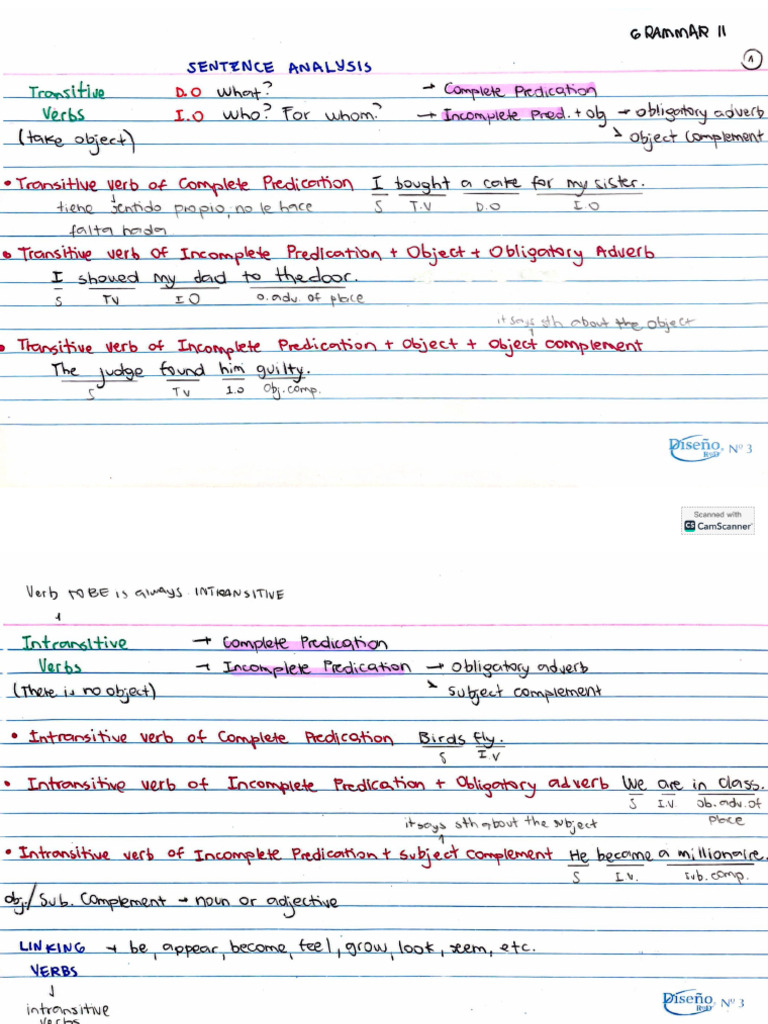 GRAMMAR II
1
SENTENCE ANALYSIS
Transitive D.O What? → Complete Predication
Verbs I.O Who? For whom? → Incomplete Pred. + obj → obligatory adverb
(take object) ↘ object complement
• Transitive verb of Complete Predication I bought a cake for my sister.
tiene sentido propio, no le hace S T.V D.O I.O
falta nada
• Transitive verb of Incomplete Predication + Object + Obligatory Adverb
I showed my dad to the door.
S TV I O o. adv. of place
it says sth about the object
• Transitive verb of Incomplete Predication + Object + Object complement
The judge found him guilty.
S TV I.O Obj. comp.
Diseño. Nº 3
RyD
Scanned with
CS CamScanner
Verb TO BE is always INTRANSITIVE
Intransitive → Complete Predication
Verbs → Incomplete Predication → obligatory adverb
(There is no object) ↘ subject complement
• Intransitive verb of Complete Predication Birds fly.
S I.V
• Intransitive verb of Incomplete Predication + Obligatory adverb We are in class.
S I.V. ob. adv. of
place
it says sth about the subject
• Intransitive verb of Incomplete Predication + subject complement He became a millionaire.
S I.V. sub. comp.
obj./Sub. Complement → noun or adjective
LINKING → be, appear, become, feel, grow, look, seem, etc.
VERBS
↓
intransitive
verbs
Diseño. Nº 3
RyD